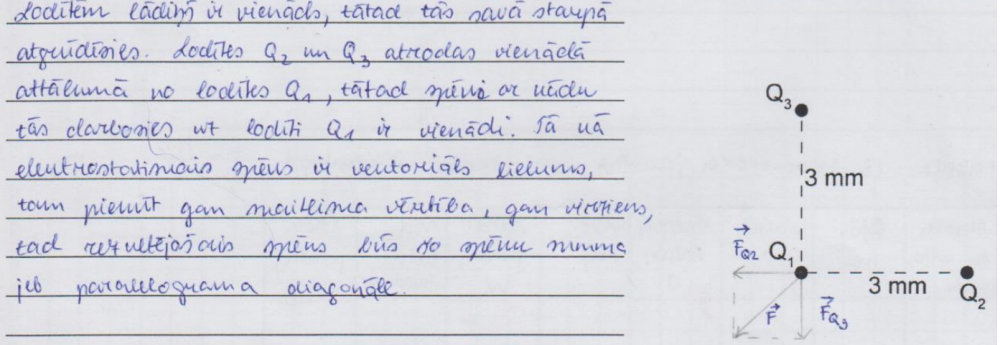 Lodītēm lādiņi ir vienāds, tātad tās savā starpā
atgrūdīsies. Lodītes Q₂ un Q₃ atrodas vienādā
attālumā no lodītes Q₁, tātad spēki ar kādu
tās darbosies uz lodīti Q₁ ir vienādi. Tā kā
elektrostatiskais spēks ir vektoriāls lielums,
tam piemīt gan skaitliska vērtība, gan virziens,
tad rezultējošais spēks būs šo spēku summa
jeb paralelograma diagonāle.
Q₃
3 mm
F⃗Q2
Q₁
3 mm
Q₂
F⃗
F⃗Q3